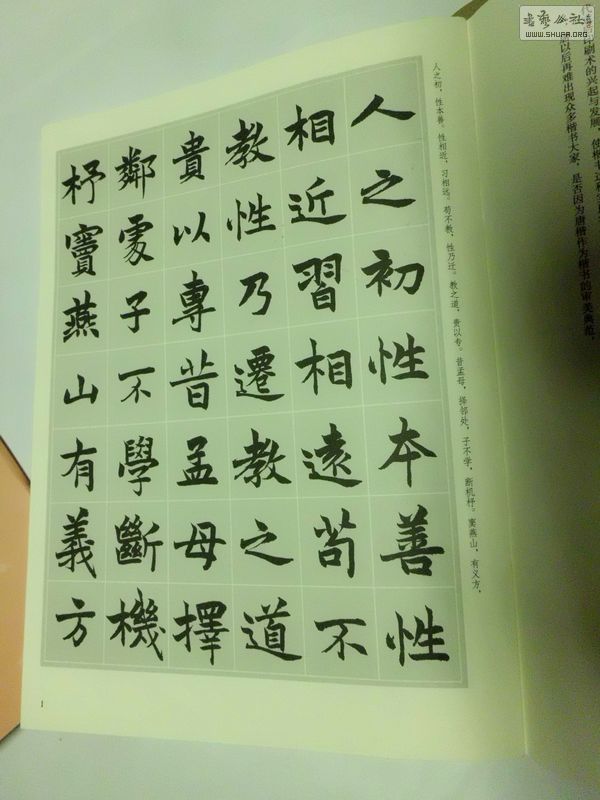 人之初性本善性
相近習相遠苟不
教性乃遷教之道
貴以專昔孟母擇
鄰處子不學斷機
杼竇燕山有義方
人之初，性本善。性相近，习相远。苟不教，性乃迁。教之道，贵以专。昔孟母，择邻处，子不学，断机杼。窦燕山，有义方，
印刷术的兴起与发展，使楷书
以后再难出现众多楷书大家，是否因为唐楷作为楷书的审美典范，
1
书艺公社
WWW.SHUFA.ORG